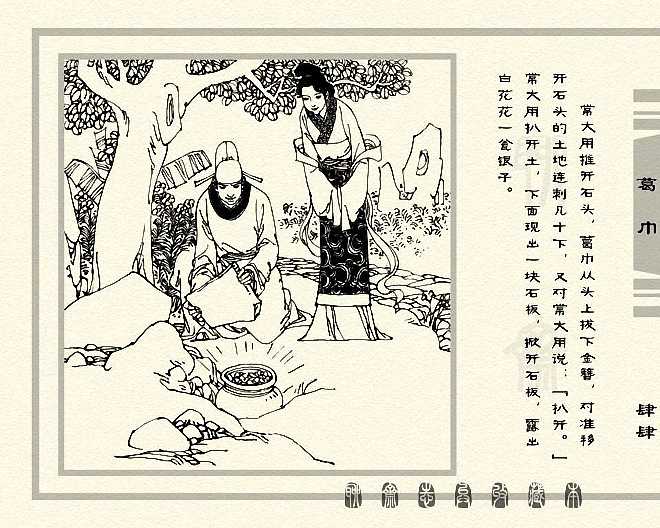 常大用推开石头，葛巾从头上拔下金簪，对准移
开石头的土地连刺几十下，又对常大用说：「扒开。」
常大用扒开土，下面现出一块石板，掀开石板，露出
白花花一瓮银子。
葛巾
肆肆
聊斋志异收藏本